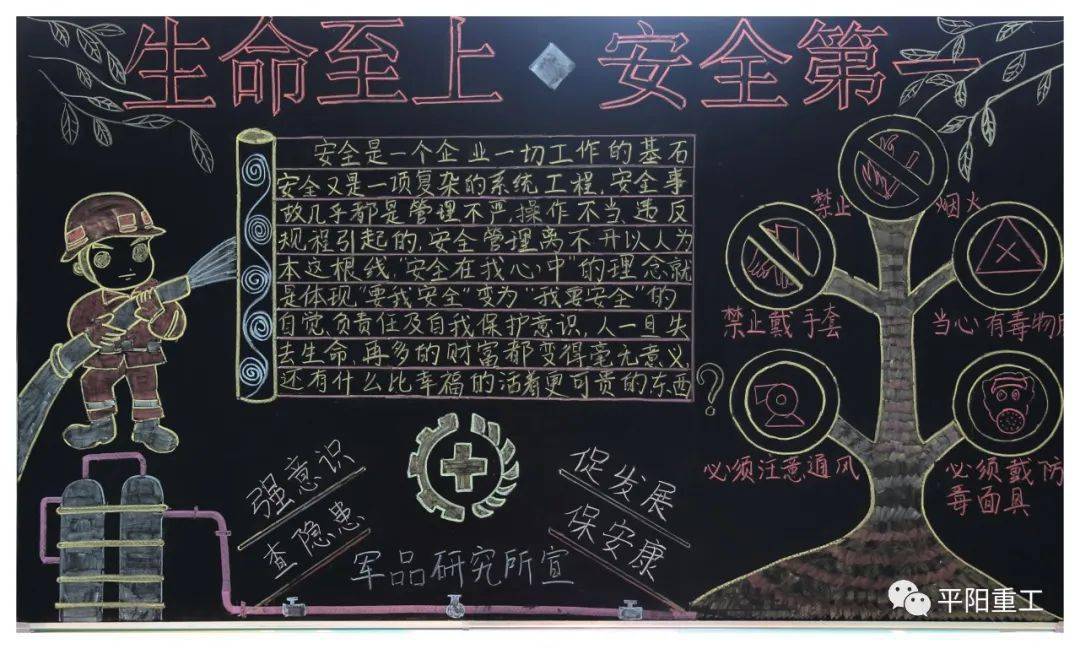 生命至上◆安全第一
安全是一个企业一切工作的基石
安全又是一项复杂的系统工程,安全事
故几乎都是管理不严,操作不当,违反
规程引起的,安全管理离不开以人为
本这根线,"安全在我心中"的理念就
是体现"要我安全"变为"我要安全"的
自觉、负责任及自我保护意识,人一旦失
去生命,再多的财富都变得毫无意义
还有什么比幸福的活着更可贵的东西
?
禁止烟火
禁止戴手套
当心有毒物质
必须注意通风
必须戴防
毒面具
强意识
查隐患
促发展
保安康
军品研究所宣
平阳重工